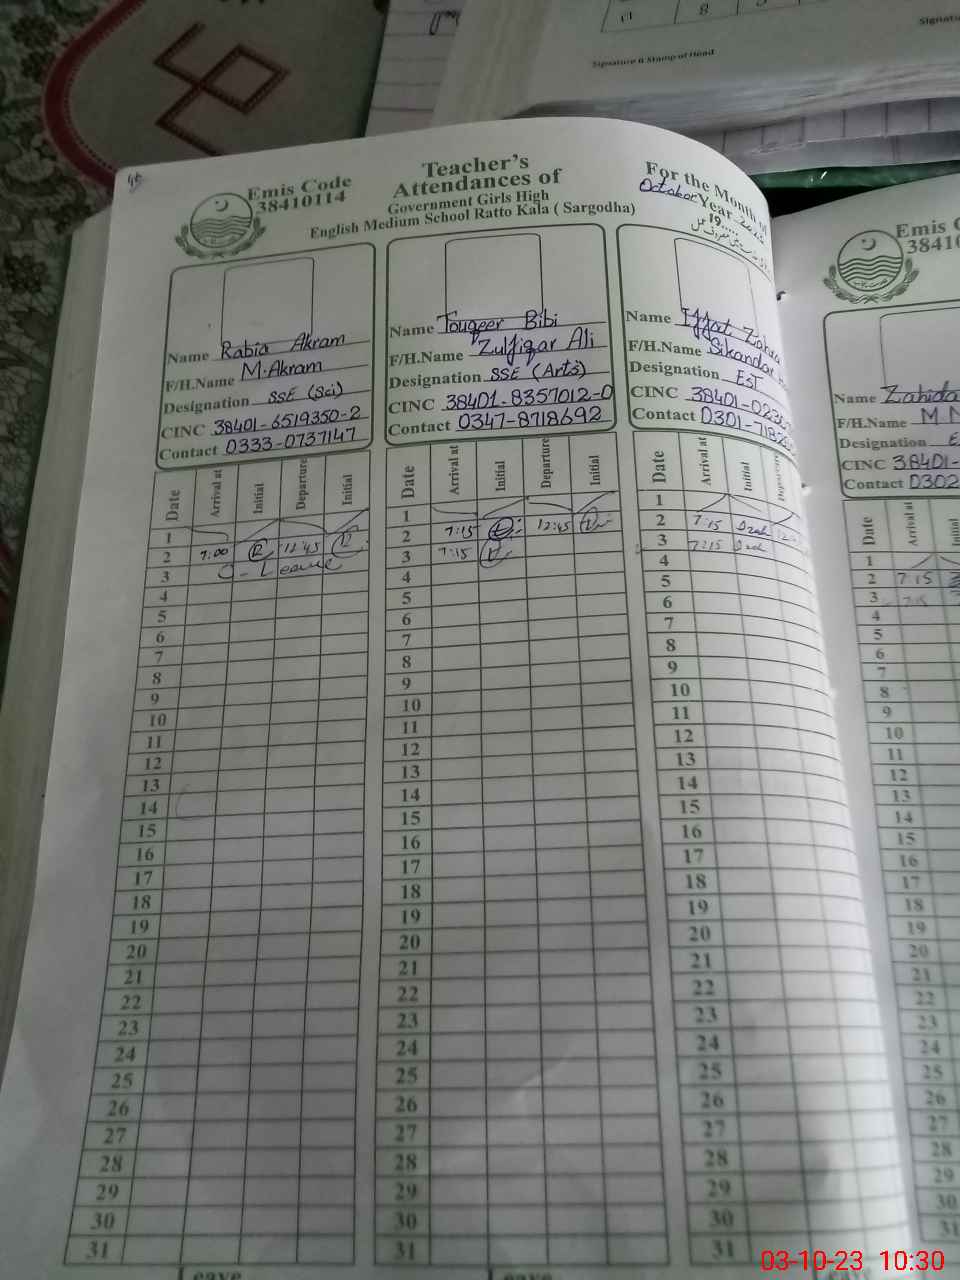 11 8
Signature & Stamp of Head
Signatu
Emis Code
38410114
Teacher's
Attendances of
Government Girls High
English Medium School Ratto Kala ( Sargodha)
For the Month of
October Year
19.....
Name Rabia Akram
F/H.Name M.Akram
Designation SSE (Sci)
CINC 38401-6519350-2
Contact 0333-0737147
Name Touqeer Bibi
F/H.Name Zulfiqar Ali
Designation SSE (Arts)
CINC 38401-8357012-0
Contact 0347-8718692
Name Iffat Zahra
F/H.Name Sikandar
Designation EST
CINC 38401-023
Contact 0301-718
Emis C
38410
Name Zahida
F/H.Name M
Designation E
CINC 38401-
Contact 0302
Date Arrival at Initial Departure Initial
1
2 7:00 R 12:45 R
3 Leave
4
5
6
7
8
9
10
11
12
13
14
15
16
17
18
19
20
21
22
23
24
25
26
27
28
29
30
31
Leave
Date Arrival at Initial Departure Initial
1
2 7:15 12:45
3 7:15
4
5
6
7
8
9
10
11
12
13
14
15
16
17
18
19
20
21
22
23
24
25
26
27
28
29
30
31
Leave
Date Arrival at Initial Departure
1
2 7:15 12
3 7:15
4
5
6
7
8
9
10
11
12
13
14
15
16
17
18
19
20
21
22
23
24
25
26
27
28
29
30
31
Date Arrival at Initial
1
2 7:15
3 7:15
4
5
6
7
8
9
10
11
12
13
14
15
16
17
18
19
20
21
22
23
24
25
26
27
28
29
30
31
03-10-23 10:30